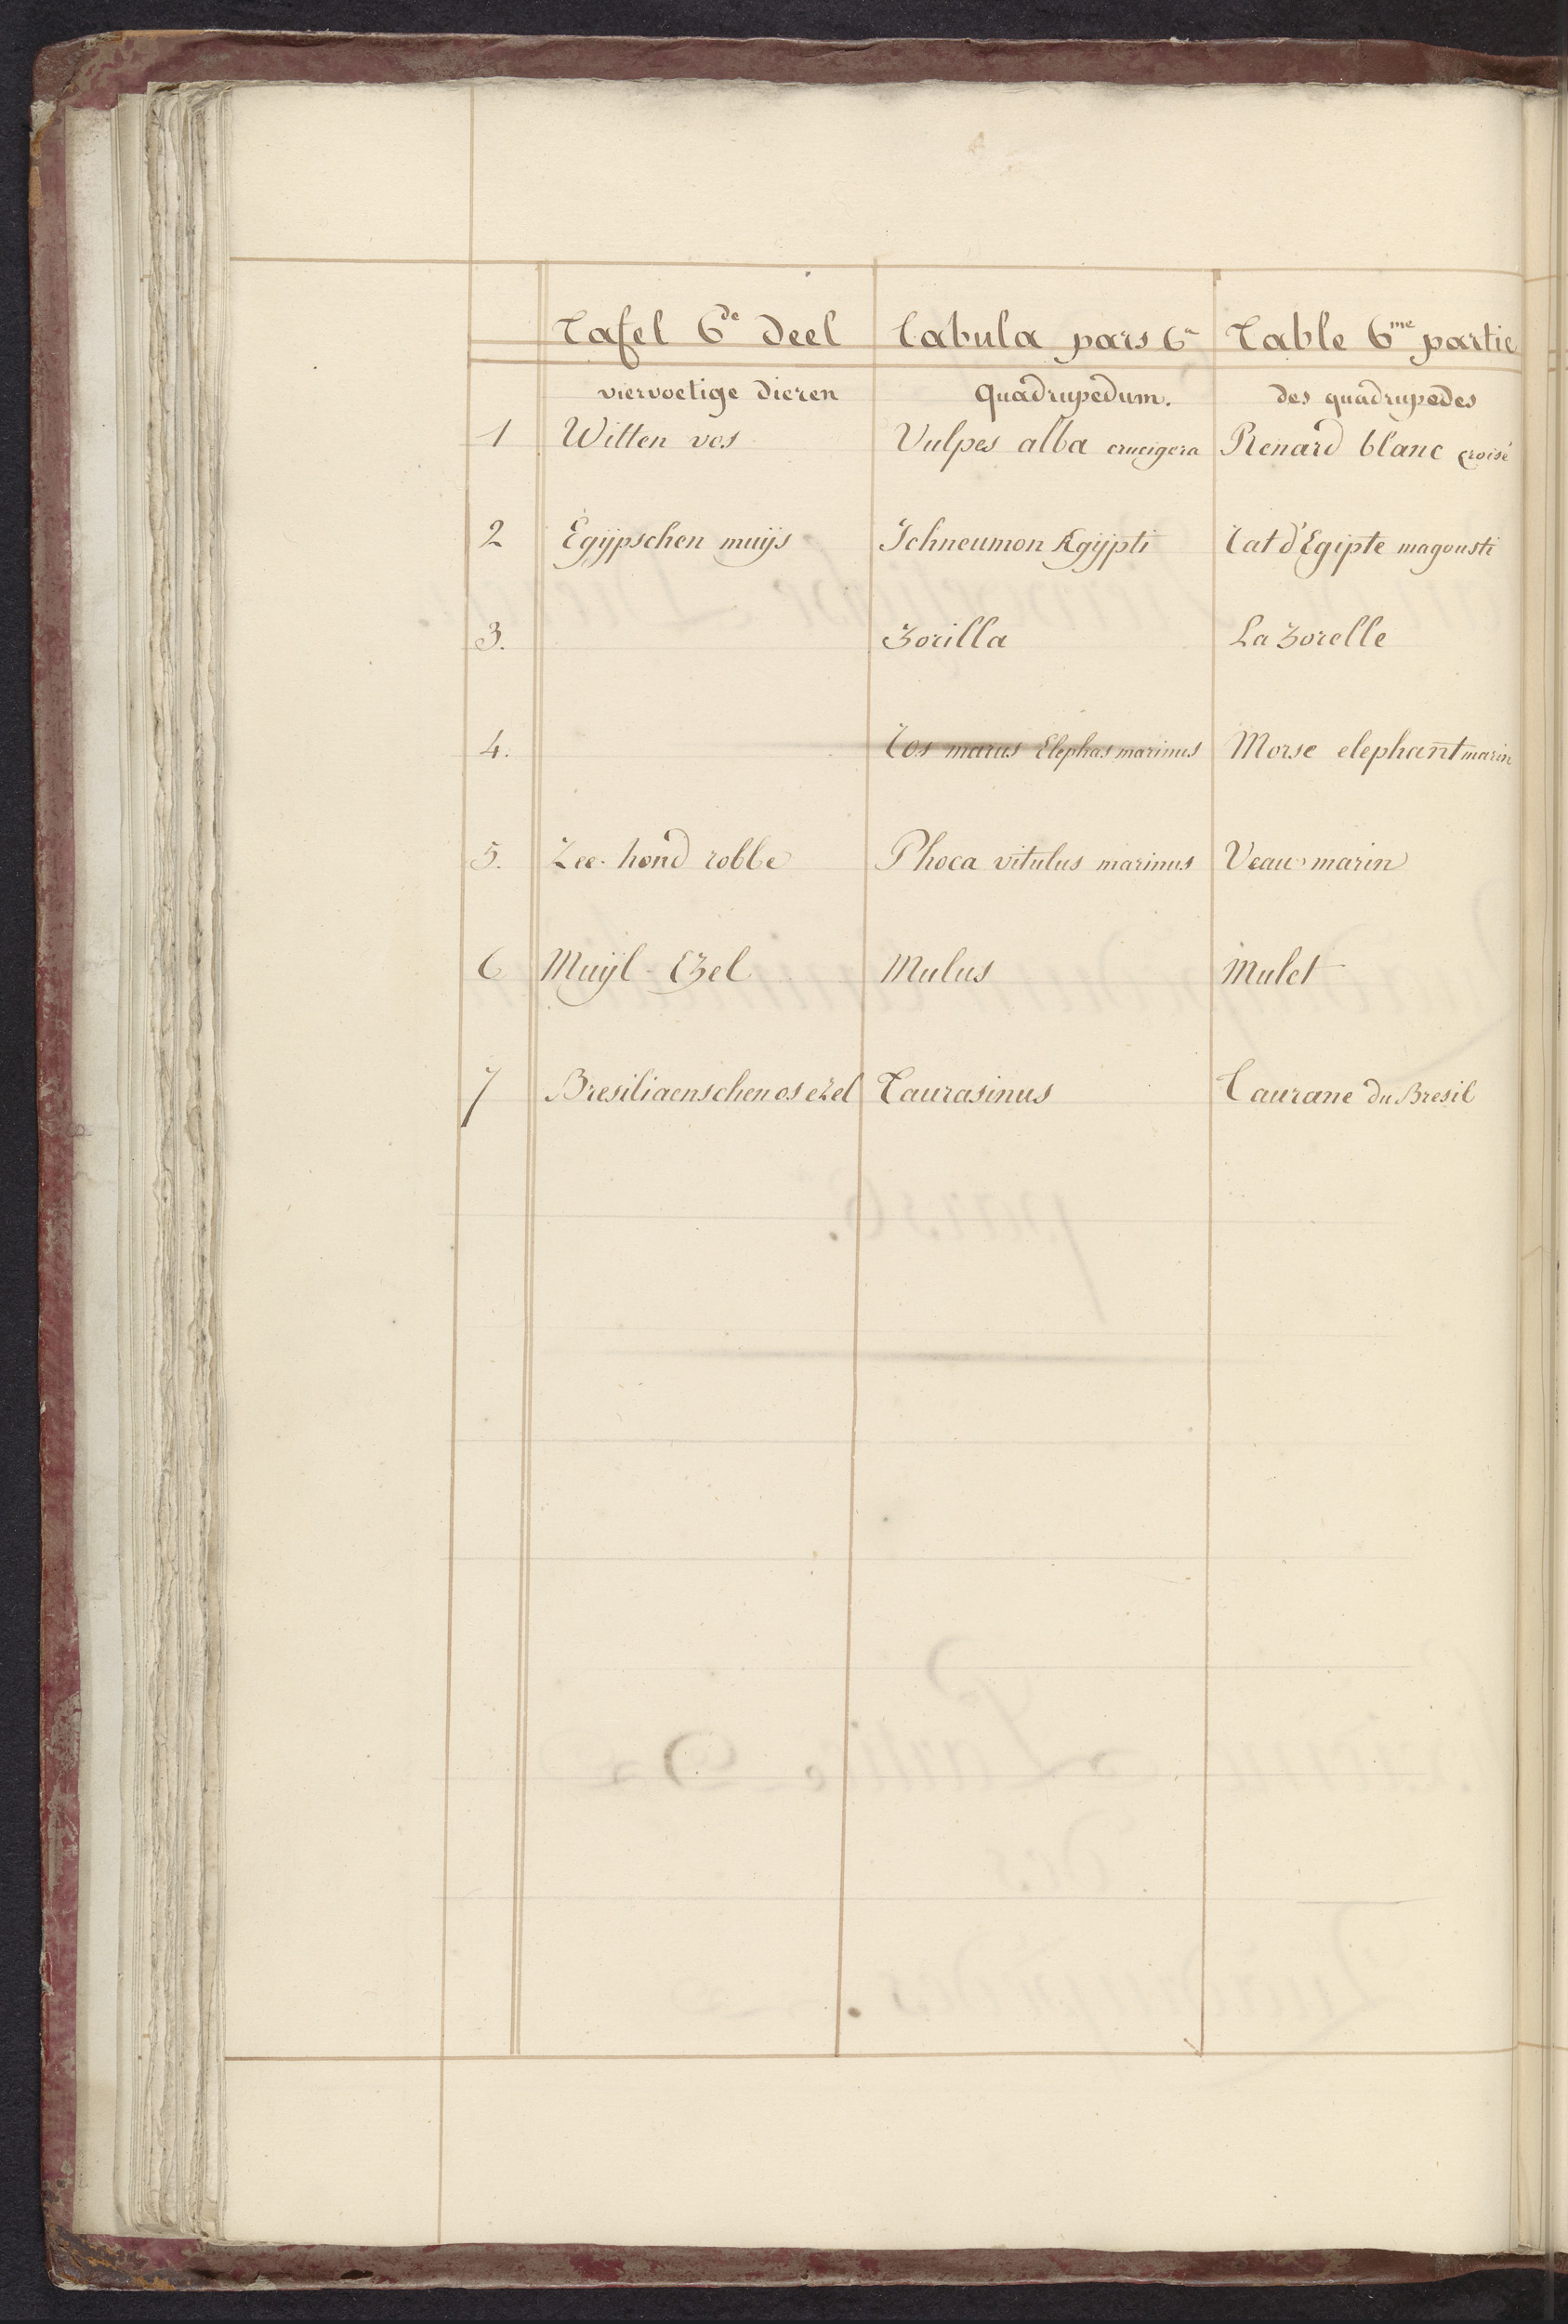 Tafel 6de deel Tabula pars 6a Table 6me partie
viervoetige dieren quadrupedum. des quadrupedes
1 Witten vos Vulpes alba crucigera Renard blanc croisé
2 Egijpschen muijs Ichneumon Egijpti Rat d'Egipte magousti
3. Zorilla La Zorelle
4. Ros marus Elephas marinus Morse elephant marin
5. Zee-hond robbe Phoca vitulus marinus Veau marin
6 Muijl-Ezel Mulus Mulet
7 Bresiliaenschen os ezel Taurasinus Taurane du Bresil